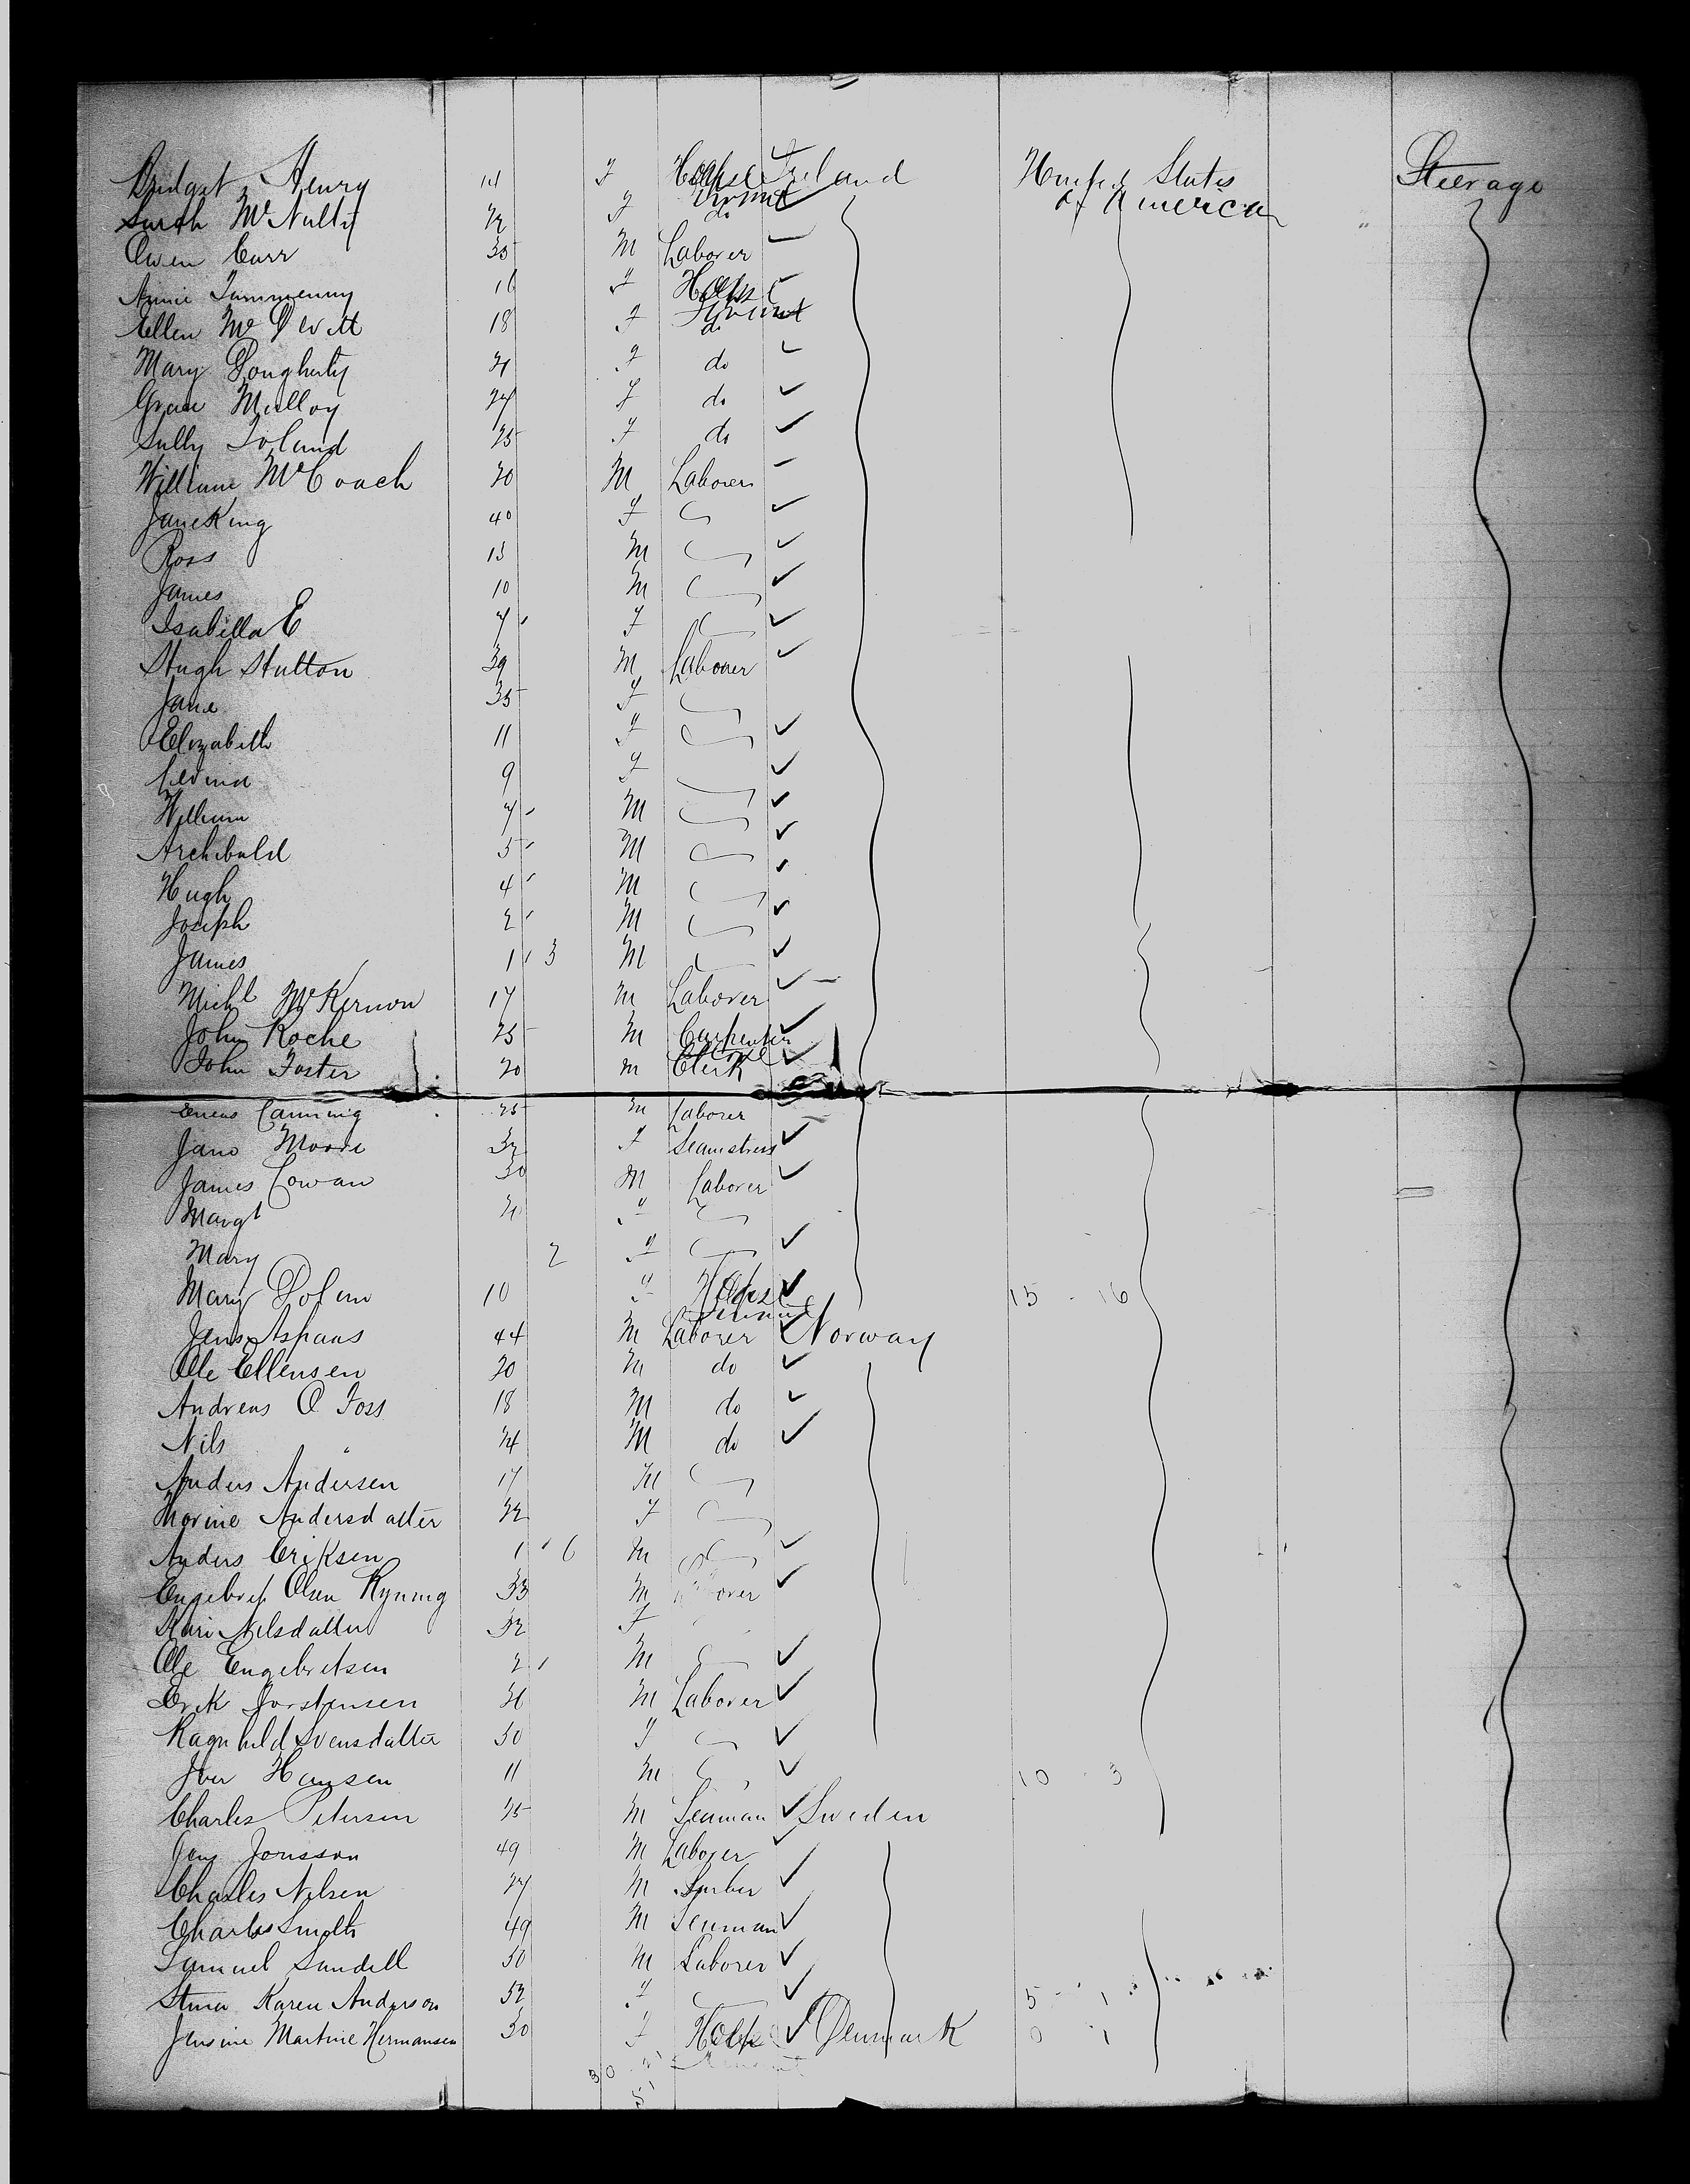 Bridget Henry 14 F House Servant Ireland United States of America Steerage
Sarah McNulty 22 F do
Owen Carr 35 M Laborer
Annie 16 F House Servant
Ellen McDevitt 18 F do
Mary Dougherty 21 F do
Grace Mulloy 24 F do
Sally Toland 25 F do
William McCoach 20 M Laborer
Jane King 40 F
Ross 13 M
James 10 M
Isabella E 7 F
Hugh Hutton 39 M Laborer
Jane 35 F
Elizabeth 11 F
9 F
William 7 M
Archibald 5 M
Hugh 4 M
Joseph 2 M
James 1 3 M
Michl McKernon 17 M Laborer
John Roche 25 M Carpenter
John Foster 20 M Clerk
Canning 25 M Laborer
Jane Moore 32 F Seamstress
James Cowan 30 M Laborer
Margt F
Mary 2 F
Mary Dolan 10 F House Servant 15 - 16
Jens Aspaas 44 M Laborer Norway
Ole Ellensen 20 M do
Andreas O Foss 18 M do
Nils " 24 M do
Anders Andersen 17 M
Thorine Andersdatter 22 F
Anders Eriksen 1 6 M
Engebret Olsen Ryning 33 M Laborer
Kari Nilsdatter 32 F
Ole Engebretsen 2 M
Erik Torstensen M Laborer
Ragnhild Svensdatter 50 F
Iver Hansen 11 M 10 - 3
Charles Petersen 25 M Seaman Sweden
Jons Jonsson 49 M Laborer
Charles Nilsen 27 M Barber
Charles Smith 49 M Seaman
Samuel Sandell 50 M Laborer
Stina Karen Anderson 52 F 5 - 1
Jensine Martine Hermansen 30 F House Servant Denmark 0 1
30 21
51